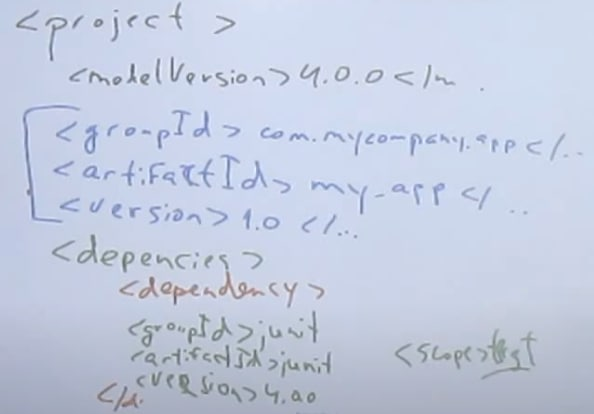 <project>
<modelVersion>4.0.0</m .
<groupId> com.mycompany.app </..
<artifactId> my_app </ ..
<version> 1.0 </...
<depencies>
<dependency>
<groupId>junit
<artifactId>junit
<version>4.00
<scope>test
</d.